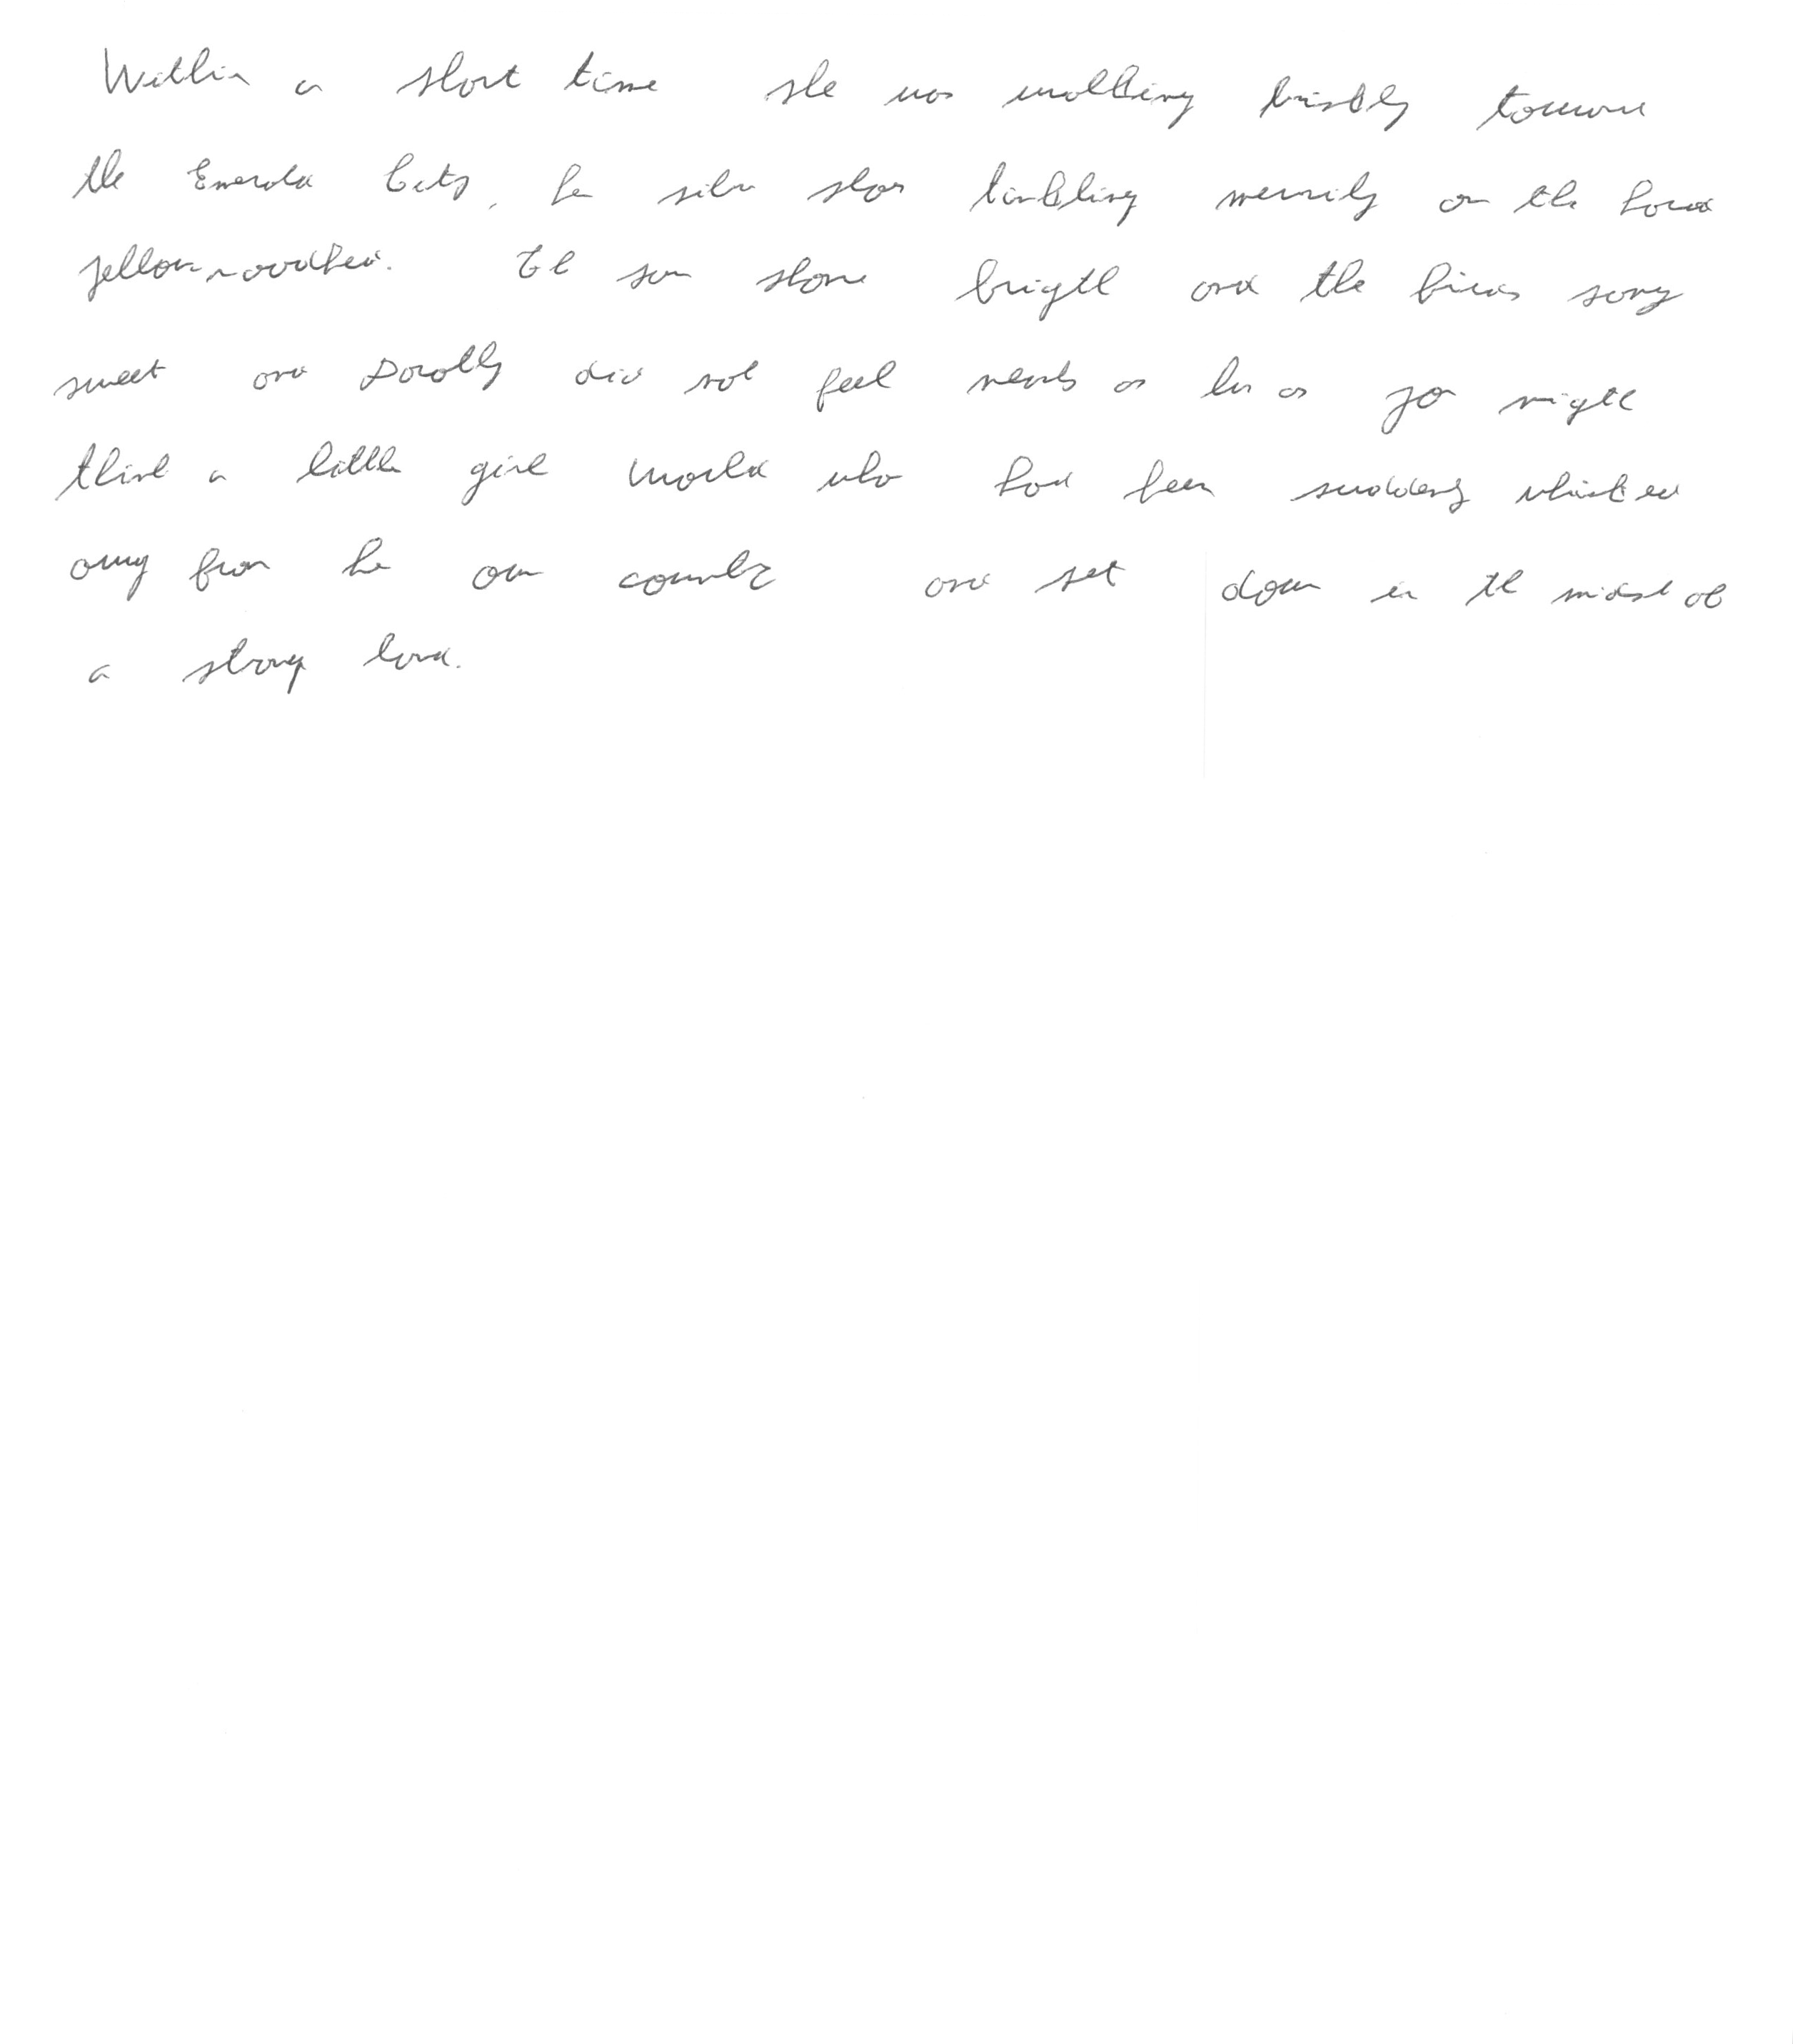 Within a short time she was walking briskly toward
the Emerald City, her silver shoes tinkling merrily on the hard
yellow roadbed. The sun shone bright and the birds sang
sweet and Dorothy did not feel nearly as bad as you might
think a little girl would who had been suddenly whisked
away from her own country and set down in the midst of
a strange land.